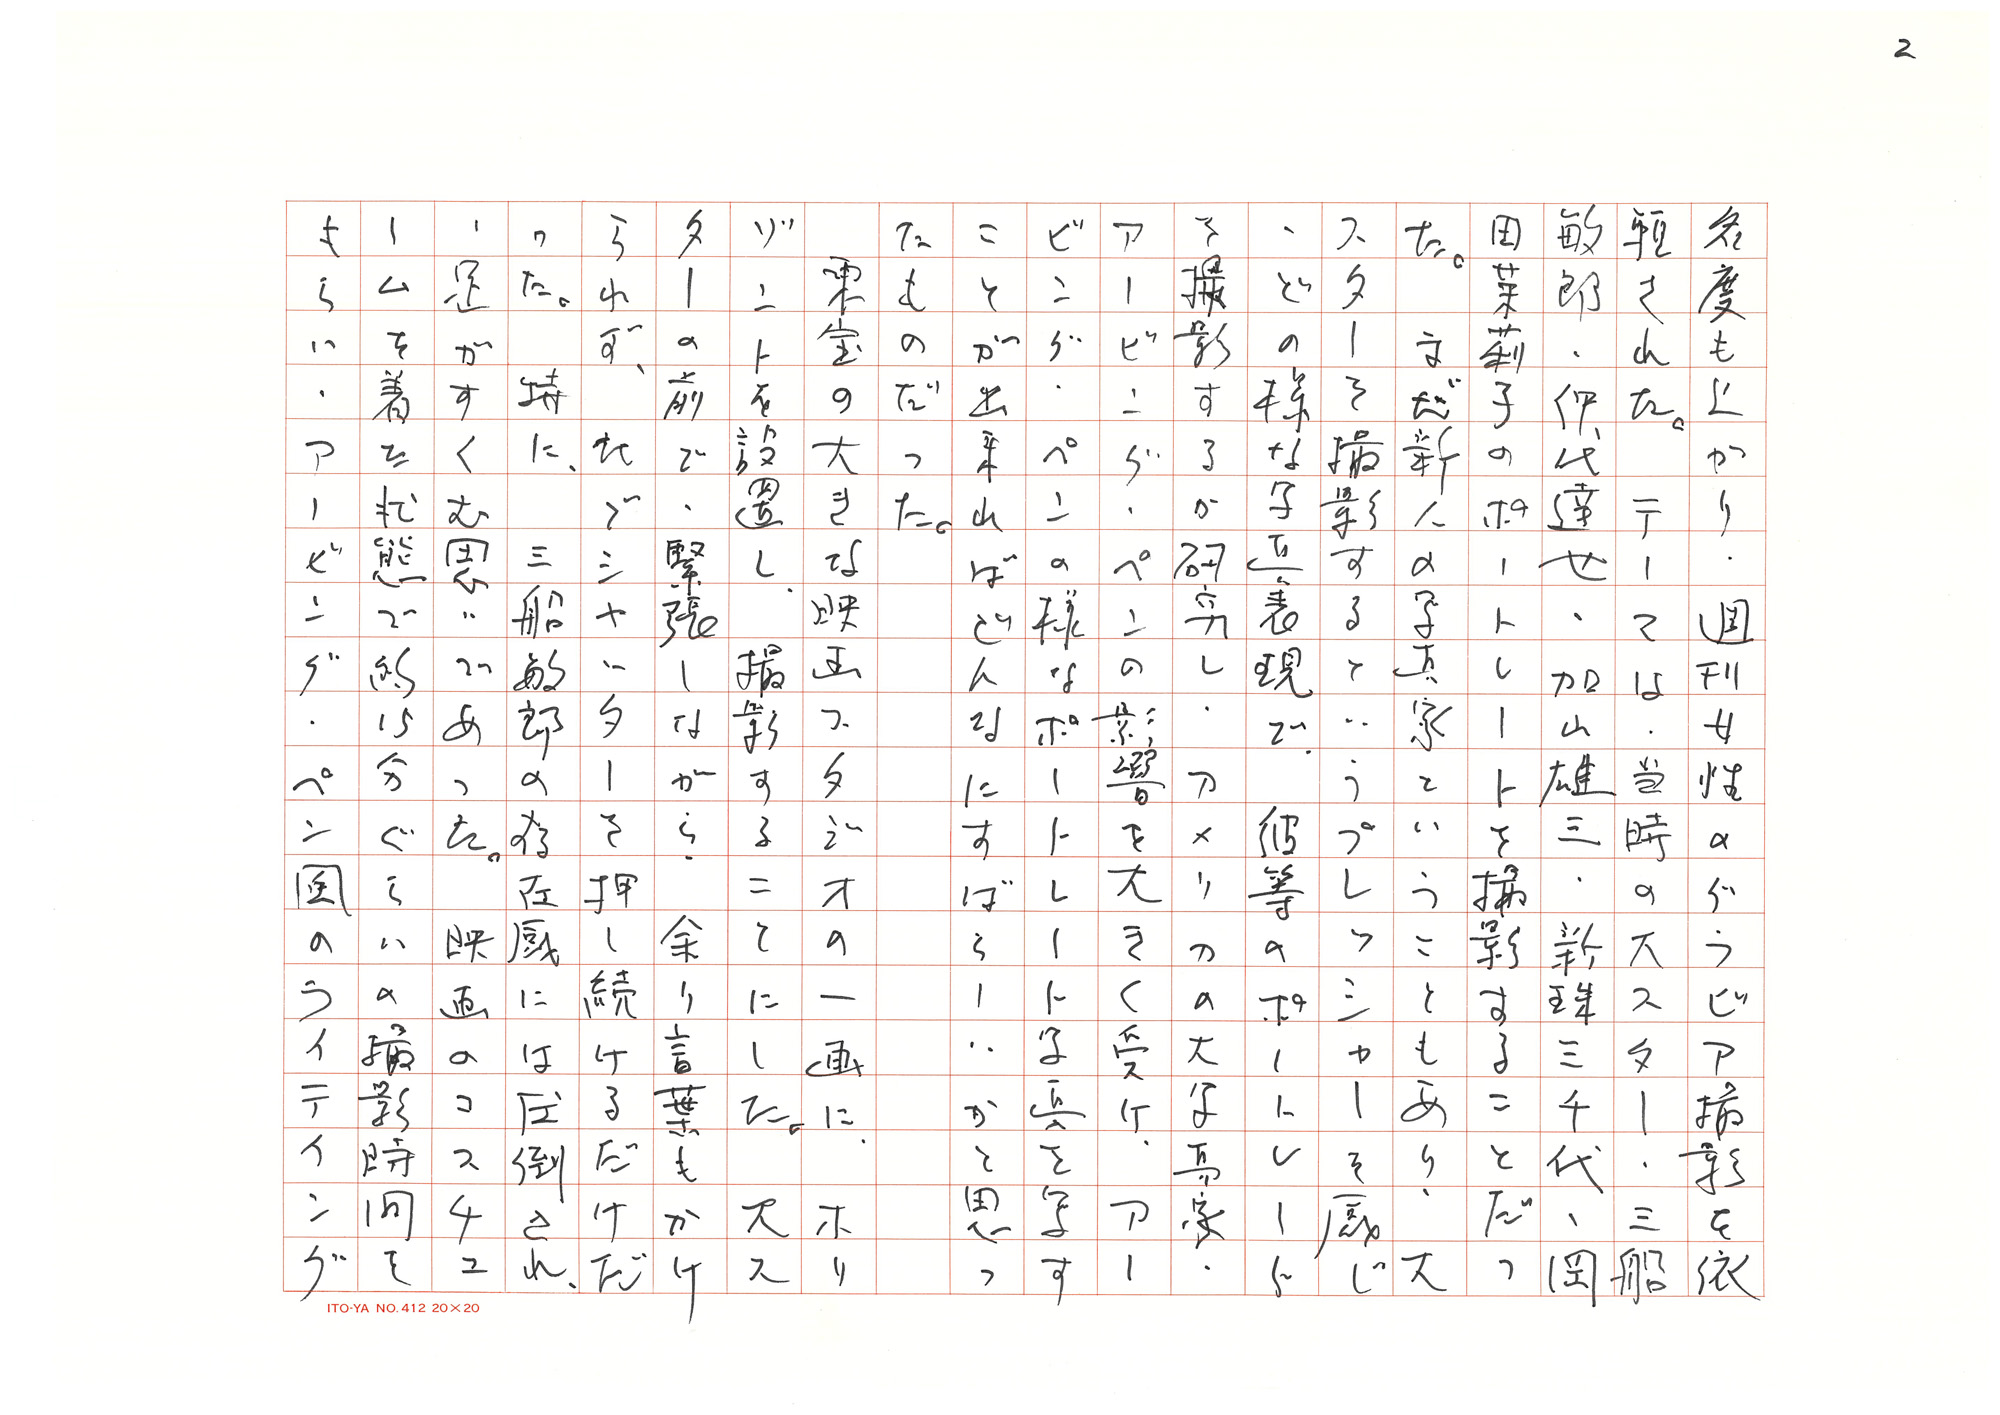 2
名度も上がり、週刊女性のグラビア撮影を依
頼された。テーマは、当時の大スター・三船
敏郎・仲代達也・加山雄三・新珠三千代、岡
田茉莉子のポートレートを撮影することだっ
た。まだ新人の写真家ということもあり、大
スターを撮影するというプレッシャーを感じ
、どの様な写真表現で、彼等のポートレート
を撮影するか研究し、アメリカの大写真家・
アービング・ペンの影響を大きく受け、アー
ビング・ペンの様なポートレート写真を写す
ことが出来ればどんなにすばらしいかと思っ
たものだった。
東宝の大きな映画スタジオの一画に、ホリ
ゾントを設置し、撮影することにした。大ス
ターの前で、緊張しながら、余り言葉もかけ
られず、たゞシャッターを押し続けるだけだ
った。特に、三船敏郎の存在感には圧倒され、
、足がすくむ思いであった。映画のコスチュ
ームを着た状態で約15分ぐらいの撮影時間を
もらい、アービング・ペン風のライティング
ITO-YA NO.412 20×20